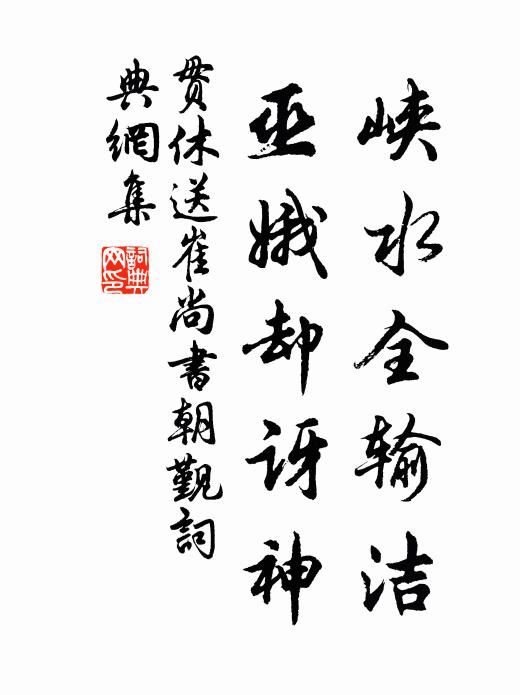 峡水全输洁
巫娥却讶神
贯休送崔尚書朝觐詞
典網集
詞典
网印